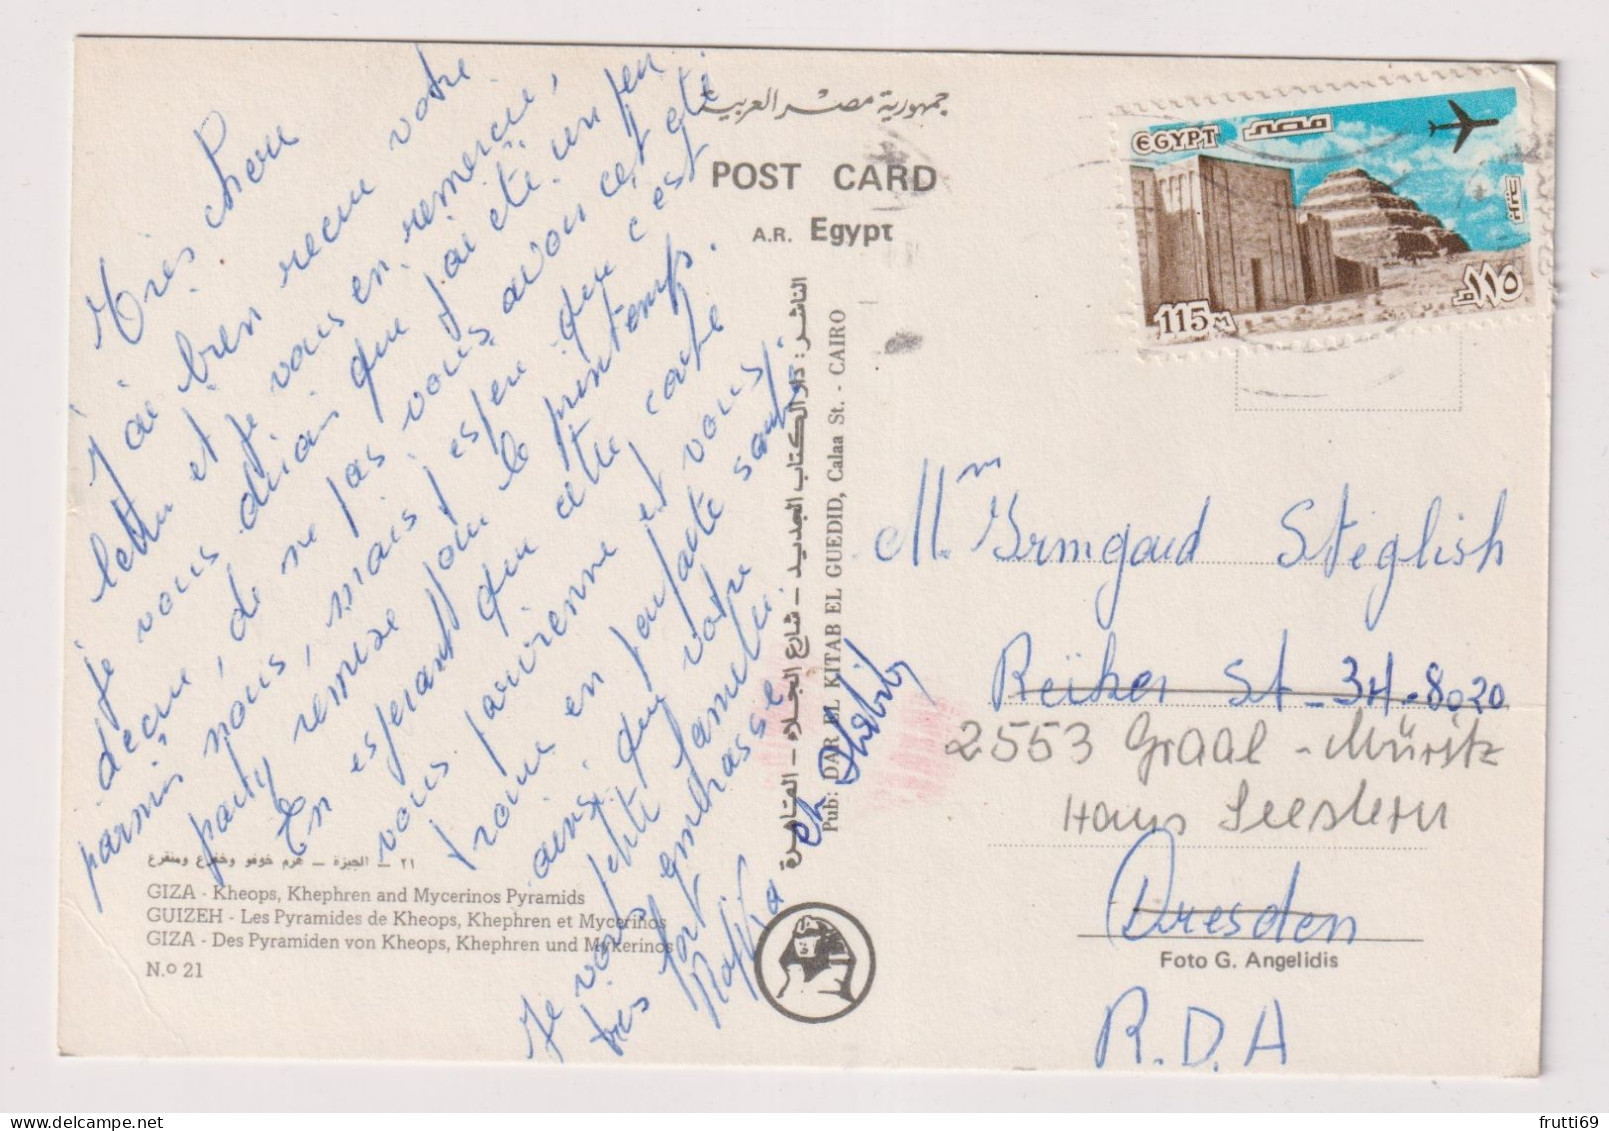 Très cher
J'ai bien reçu votre
lettre et je vous en remercie,
je vous dirais que j'ai été un peu
déçue, de ne pas vous avoir cet été
parmis nous, mais j'espère que c'est
party remise pour le printemps.
En espérant que cette carte
vous parvienne et vous
trouve en parfaite santé.
ainsi que votre
petite famille.
Je vous embrasse
très fort
Rafika et Habib
جمهورية مصر العربية
POST CARD
A.R. Egypt
EGYPT مصر
115 M
١١٥
الناشر: دار الكتاب الجديد - شارع الجلاء - القاهرة
Pub: DAR EL KITAB EL GUEDID, Calaa St. - CAIRO
Mm Irmgard Steglish
Reiker St - 34 - 8020
2553 Graal - Müritz
Haus Seestern
Dresden
Foto G. Angelidis
R.D.A
٢١ - الجيزة - هرم خوفو وخفرع ومنقرع
GIZA - Kheops, Khephren and Mycerinos Pyramids
GUIZEH - Les Pyramides de Kheops, Khephren et Mycerinos
GIZA - Des Pyramiden von Kheops, Khephren und Mykerinos
N.o 21
frutti69